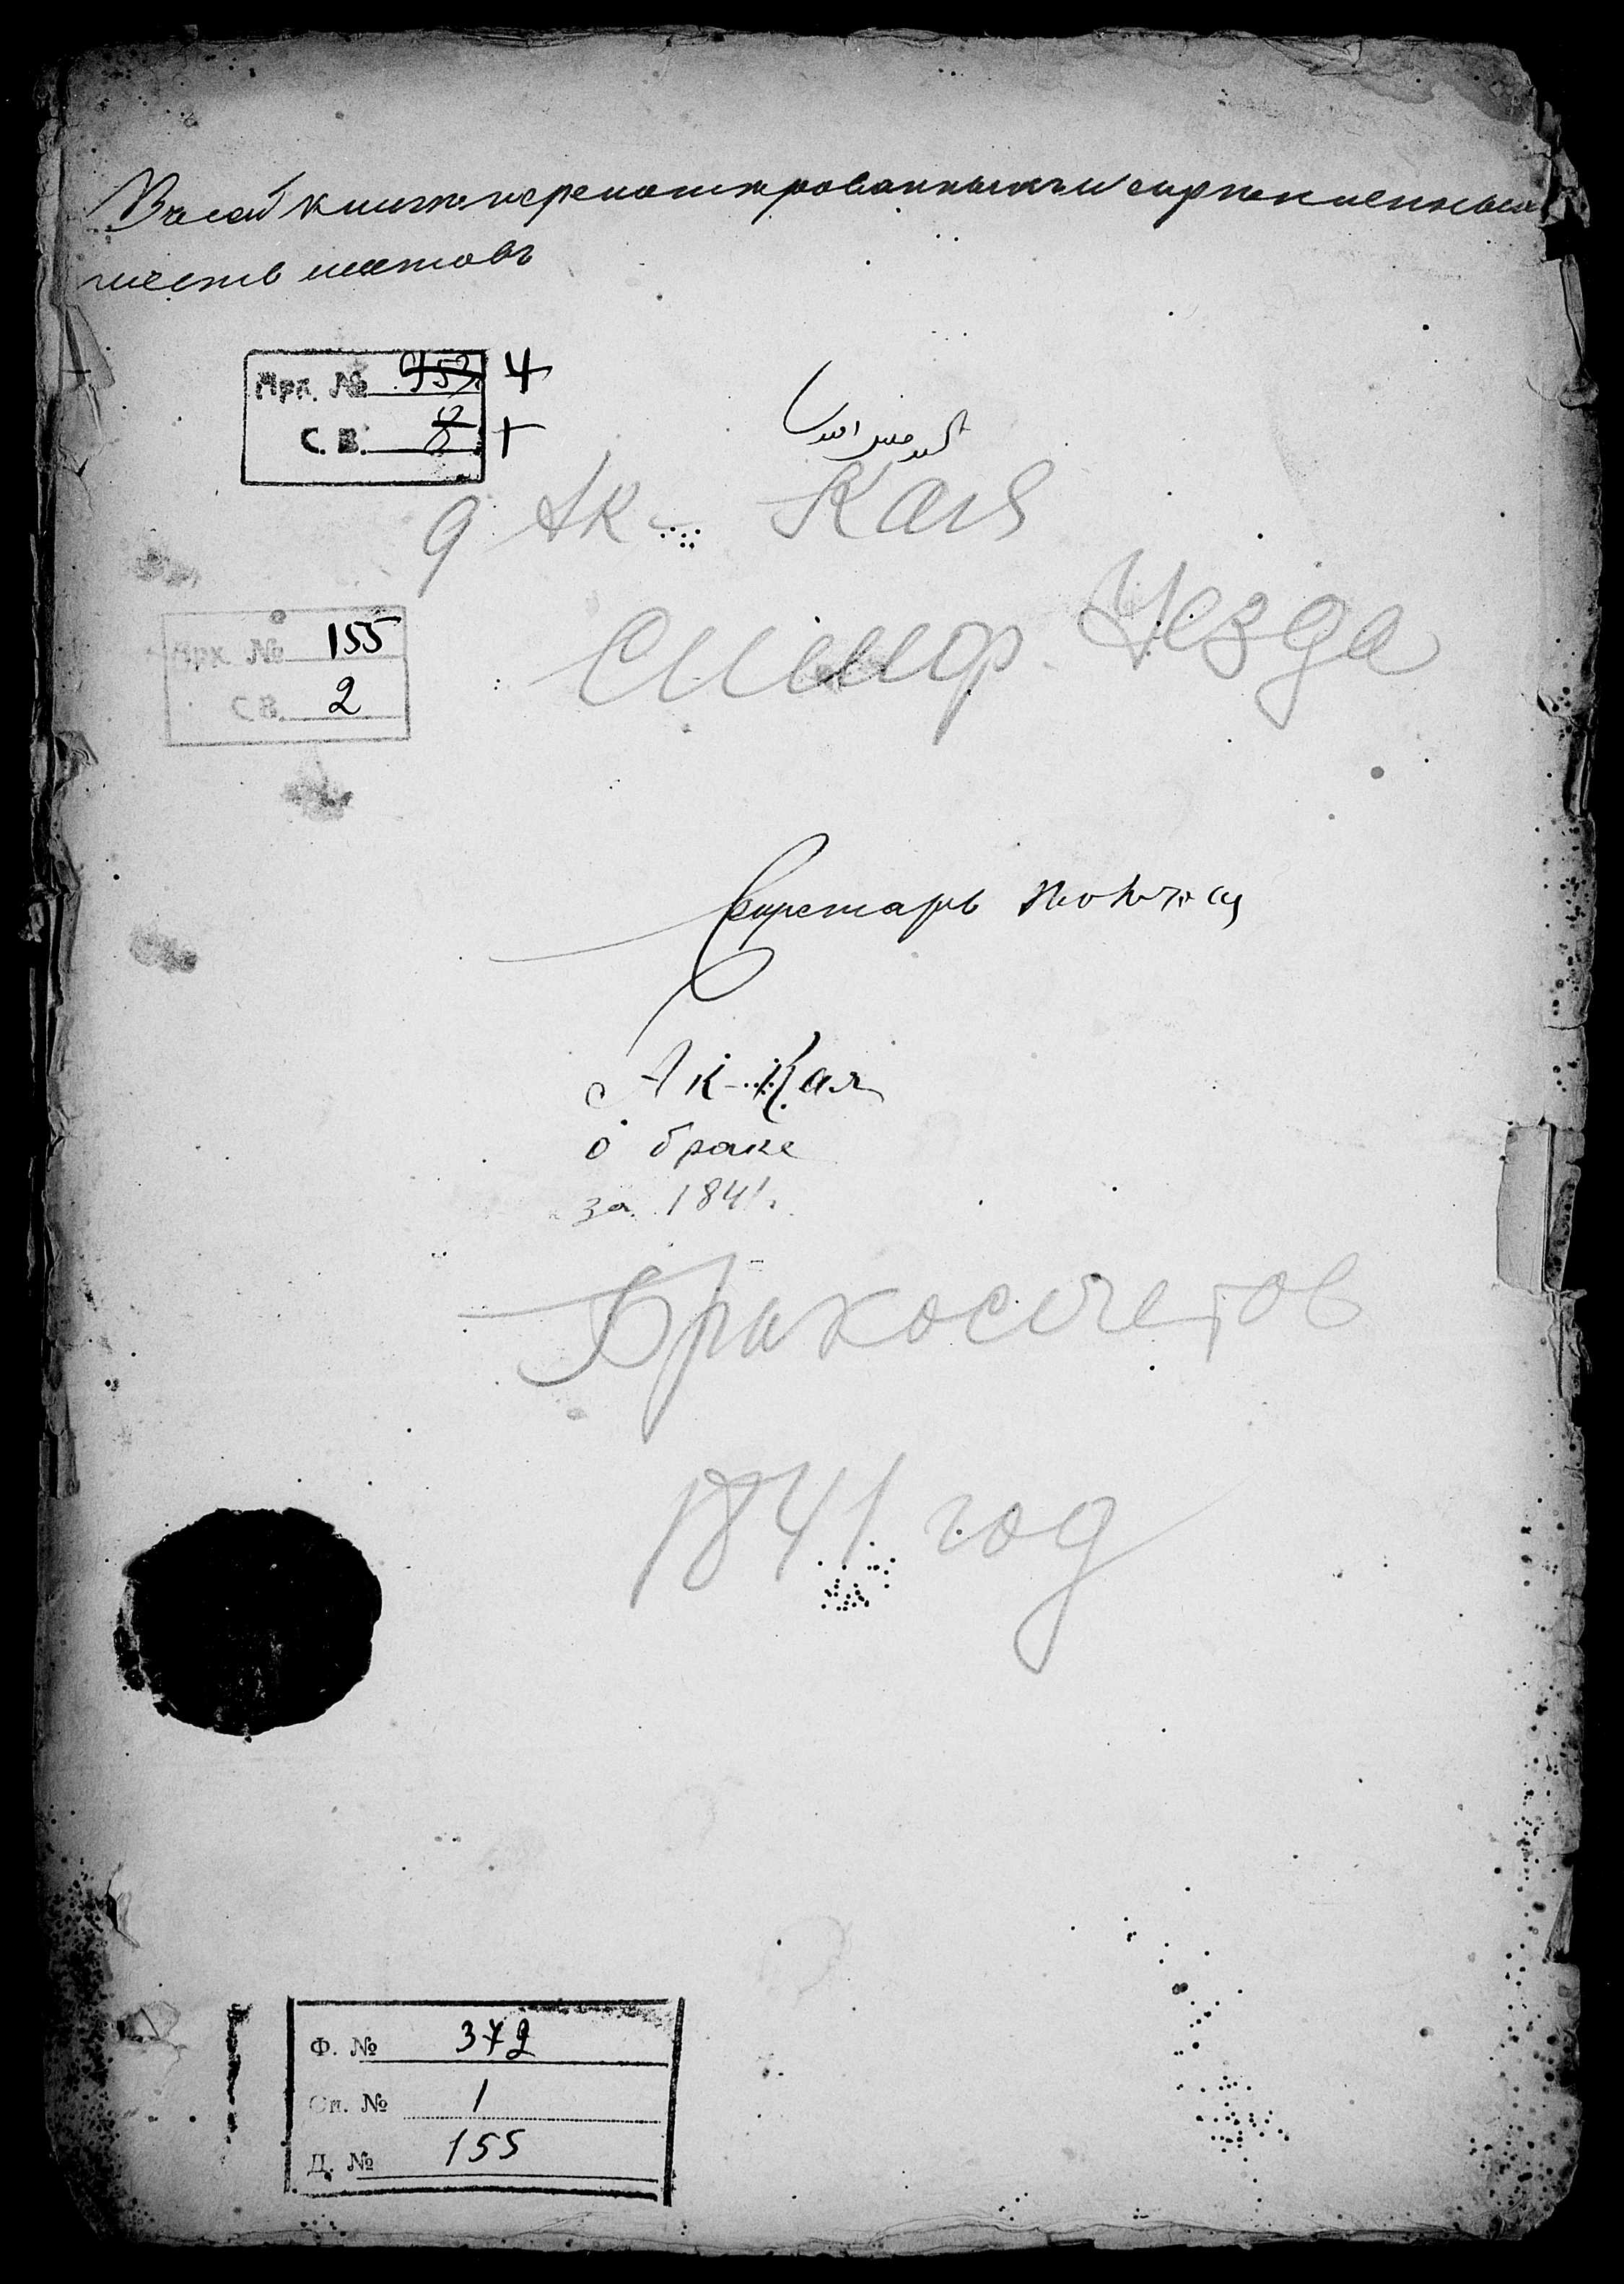 Въ сей книге перенотированныхъ и скрепленныхъ
шесть листовъ
Арх. № 953 4
С. В. 8 1
д Ак - Кая
Симфер. Уезда
Арх. № 155
С. В. 2
Секретарь
Ак-Кая
о браке
за 1841 г.
Бракосочетов
1841 год
Ф. № 372
Оп. № 1
Д. № 155